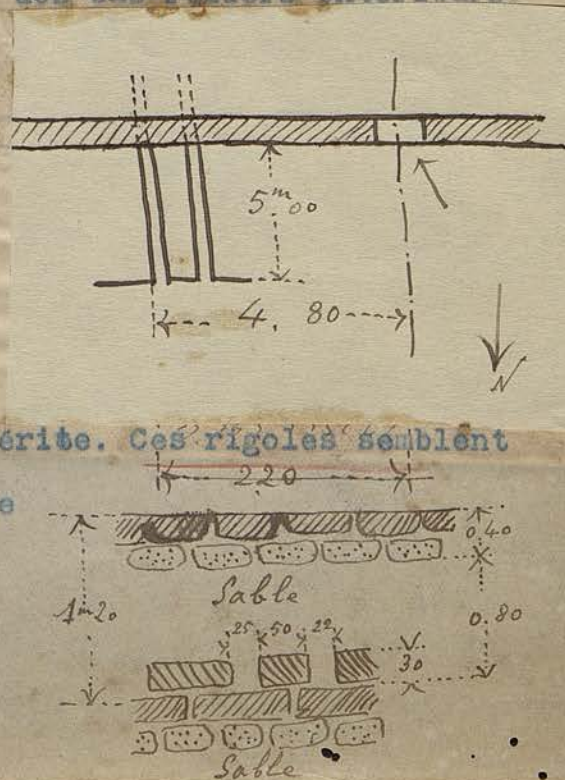 5.ᵐ00
4. 80
N
érite. Ces rigoles semblent
220
e
0.40
Sable
1ᵐ20
25 50 22
0.80
30
Sable